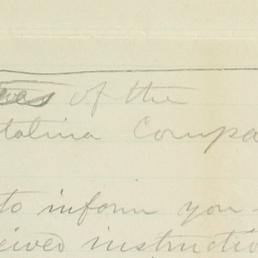 of the
talina Compa
to inform you
eived instructio